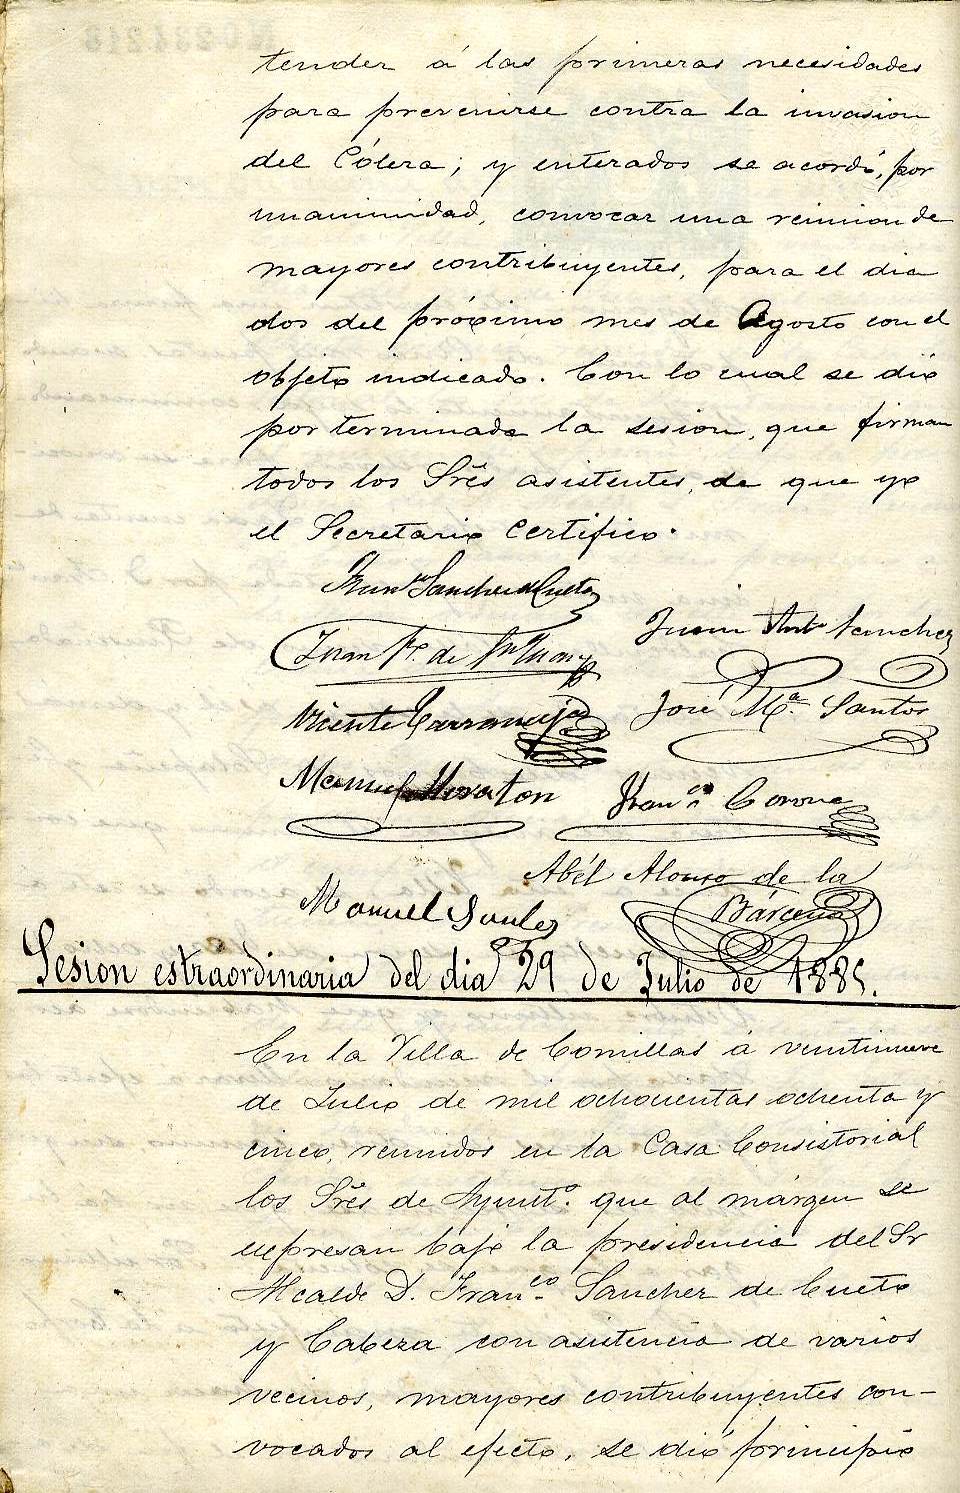 tender á las primeras necesidades
para prevenirse contra la invasion
del Cólera; y enterados se acordó, por
unanimidad, convocar una reunion de
mayores contribuyentes, para el dia
dos del próximo mes de Agosto con el
objeto indicado. Con lo cual se dió
por terminada la sesion, que firman
todos los Srēs asistentes, de que yo
el Secretario certifico.
Franco Sanchez de Cueto
Juan Anto Sanchez
Juan Fz. de
Vicente
José Ma. Santos
Manuel Moraton
Franco Corona
Abél Alonso de la
Bárcena
Manuel
Sesion estraordinaria del dia 29 de Julio de 1885.
En la Villa de Comillas á veintinueve
de Julio de mil ochocientos ochenta y
cinco, reunidos en la Casa Consistorial
los Srēs de Ayuntº. que al márgen se
espresan bajo la presidencia del Sr
Alcalde D. Franco Sanchez de Cueto
y Cabeza con asistencia de varios
vecinos, mayores contribuyentes con-
vocados al efecto, se dió principio